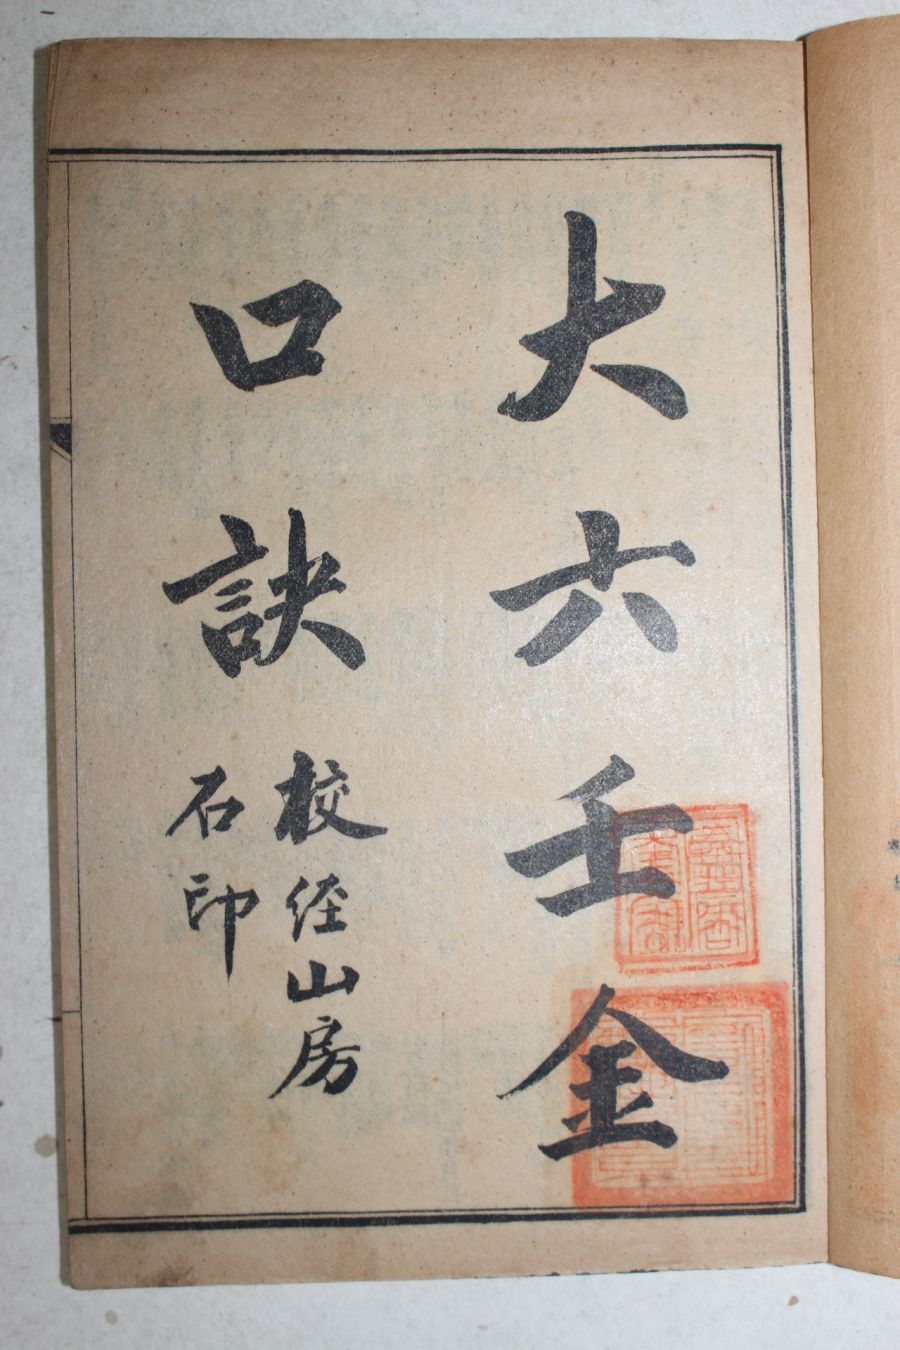 大六壬金
口訣
校經山房
石印